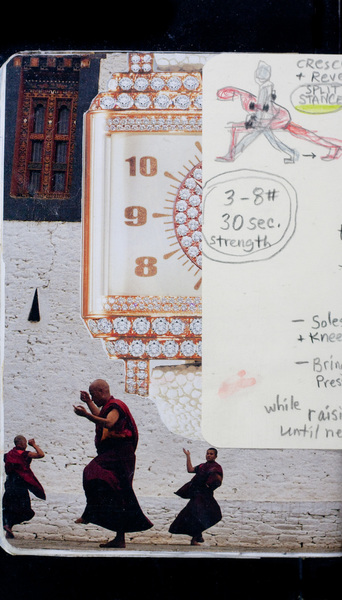 10
9
8
CRESC
+ Reve
SPLIT
STANCE
3-8#
30 sec.
strength
- Soles
+ Knee
- Brin
Pres
while raisi
until ne